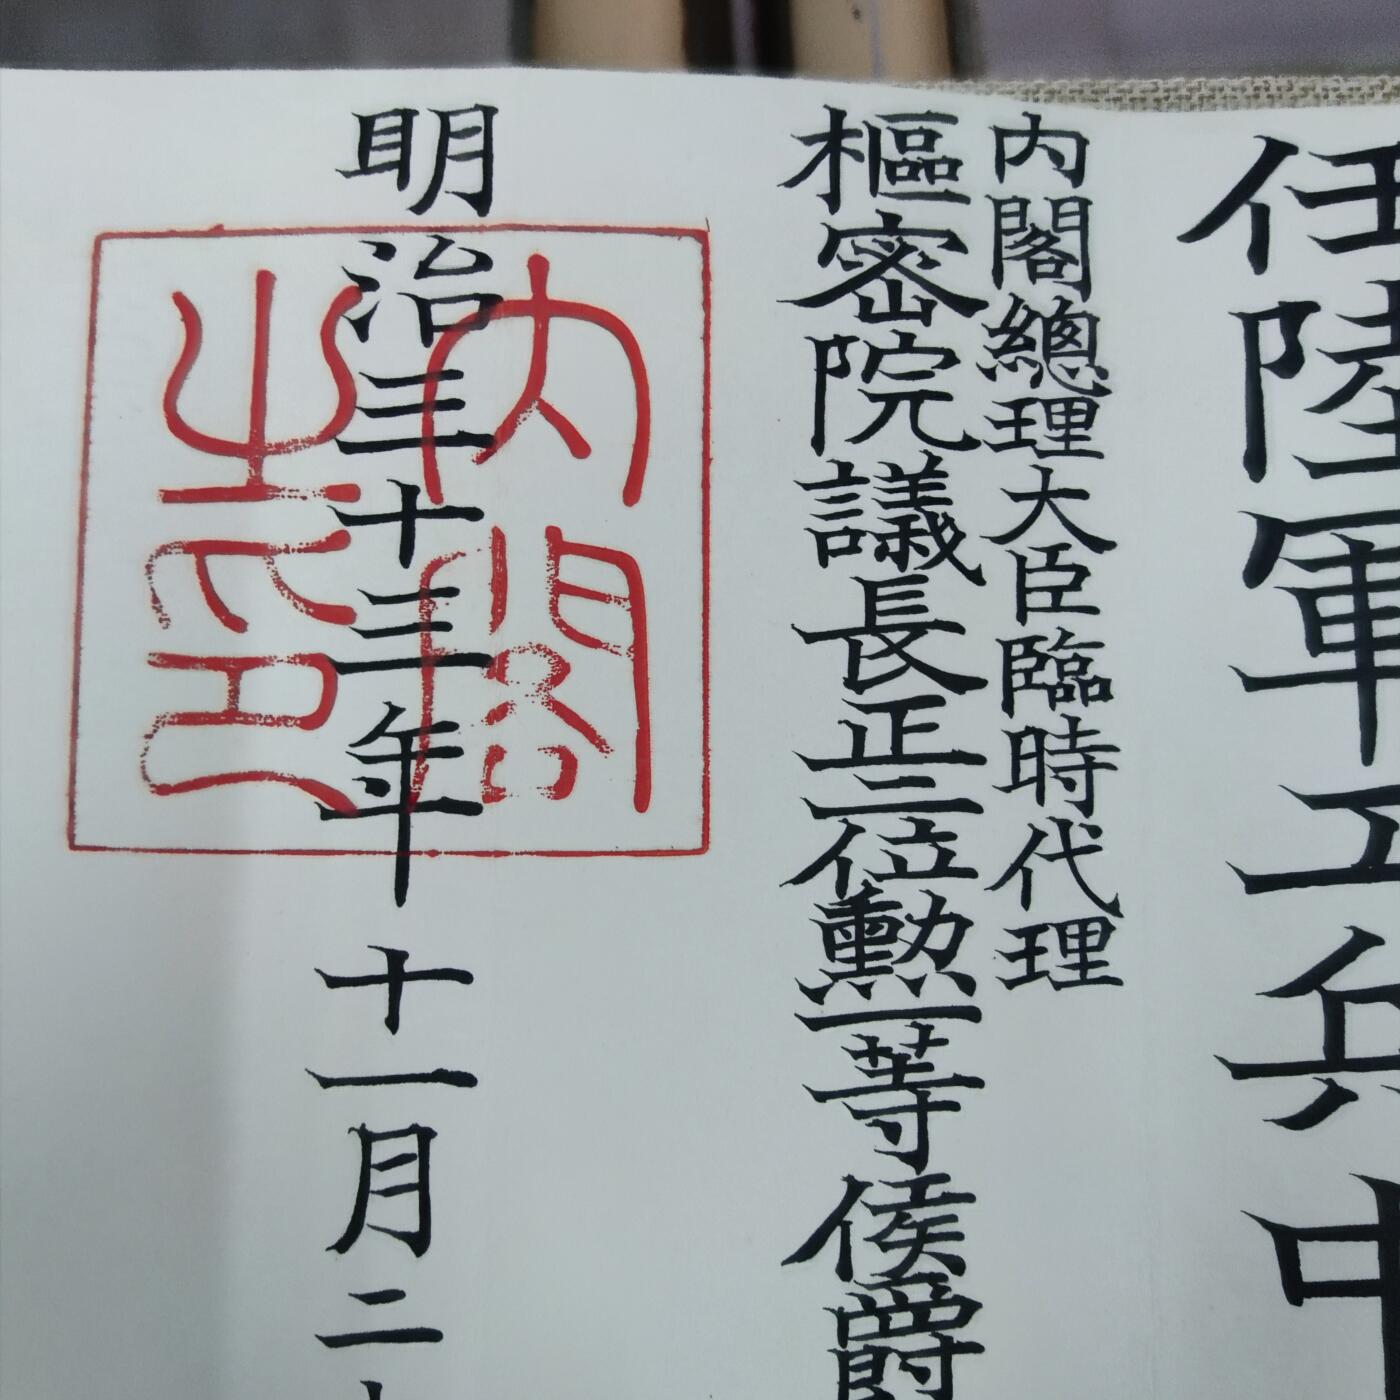 任陸軍工兵中
内閣總理大臣臨時代理
樞密院議長正二位勲一等侯爵
明治三十三年十一月二十
内閣之印